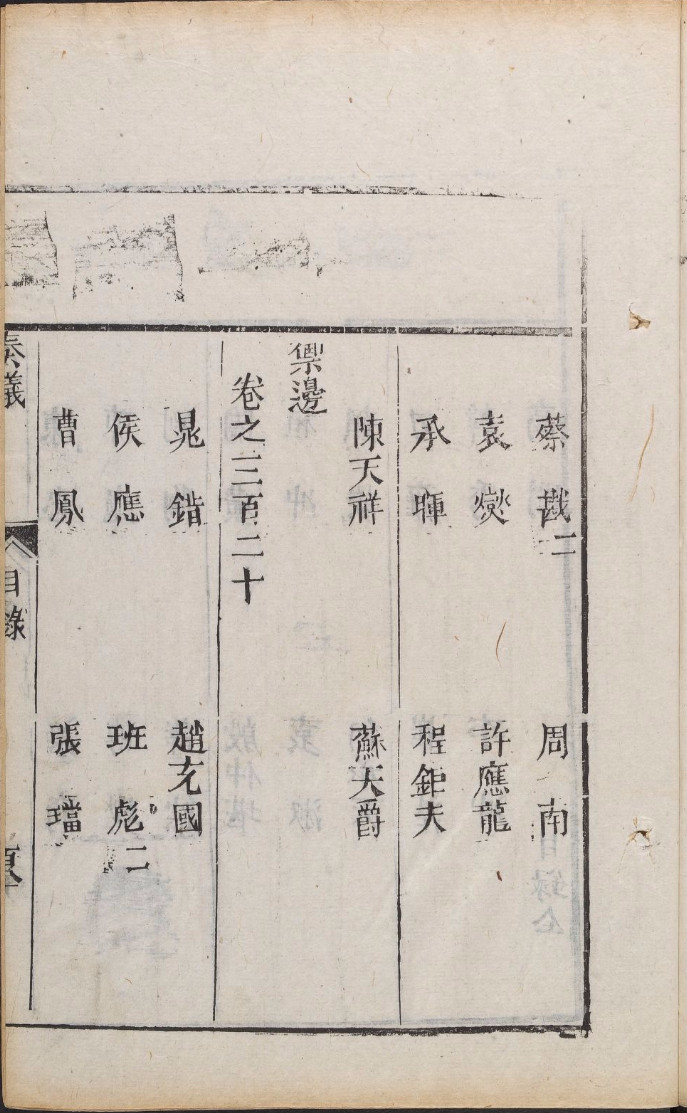 蔡戡二 周南
袁燮 許應龍
承暉 程鉅夫
陳天祥 蘇天爵
禦邊
卷之三百二十
晁錯 趙充國
侯應 班彪二
曹鳳 張璫
奏議 目錄